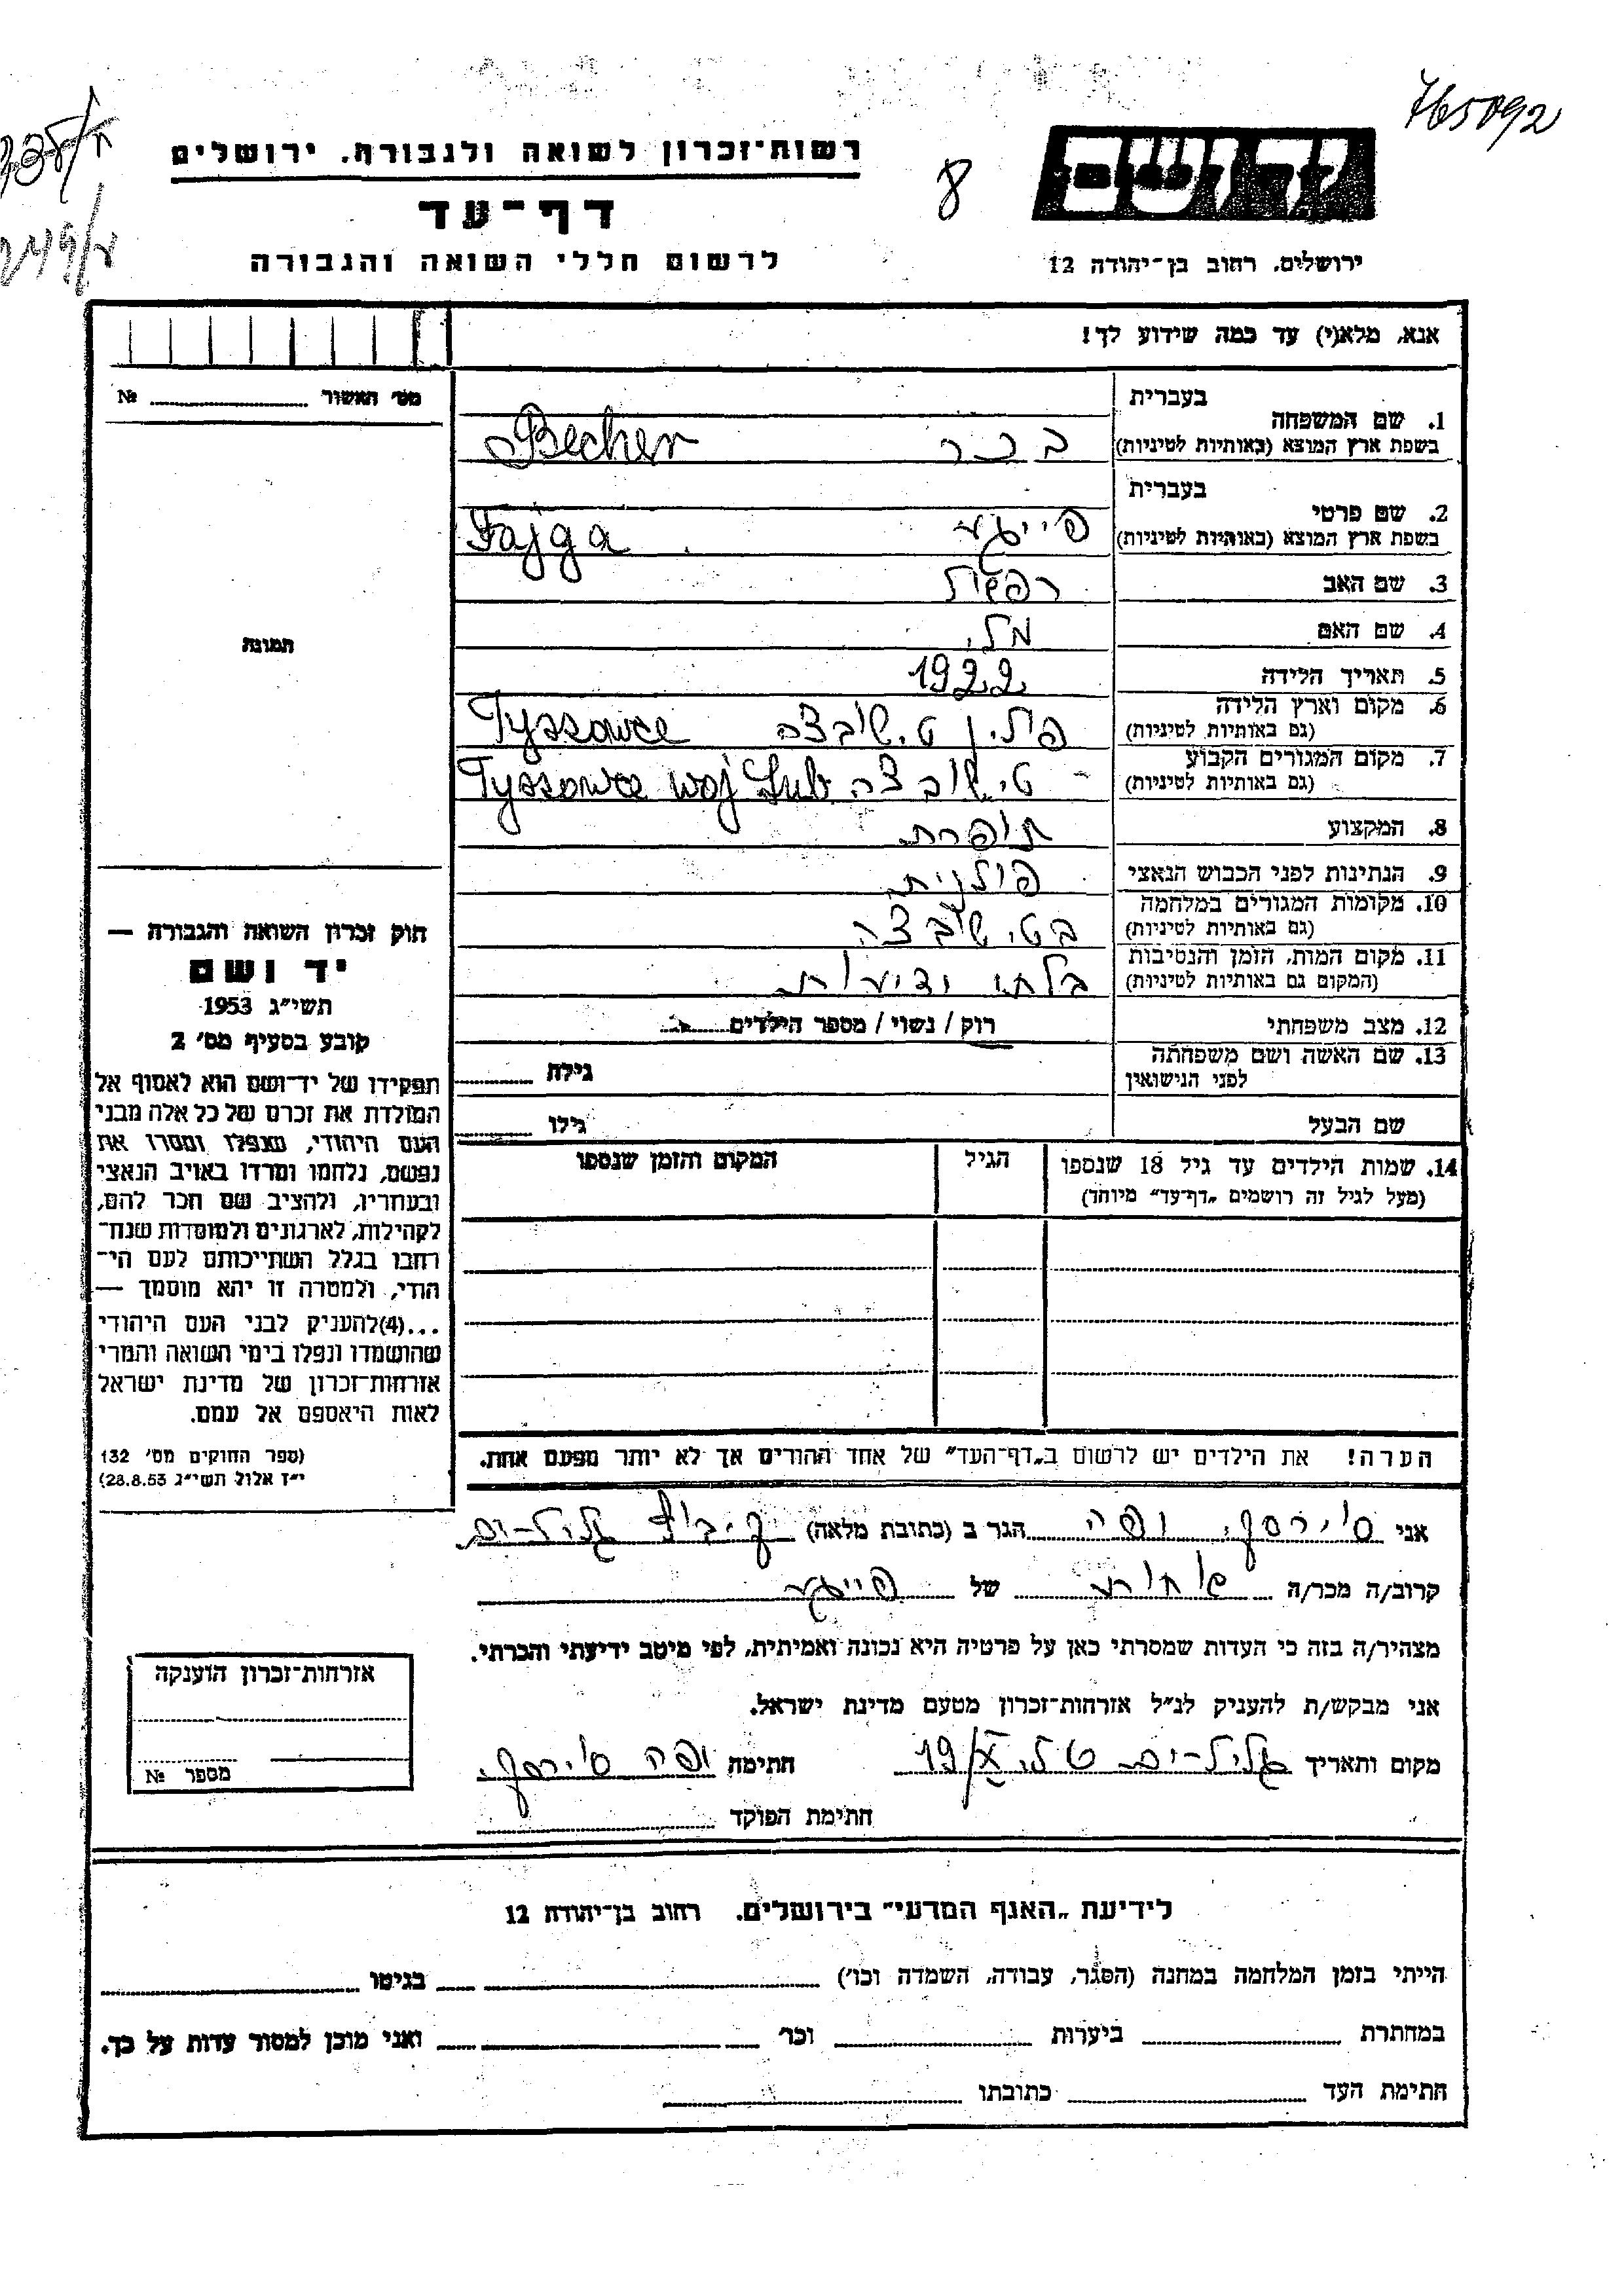 765092
רשות־זכרון לשואה ולגבורה, ירושלים
8
דף־עד
לרשום חללי השואה והגבורה
ירושלים, רחוב בן־יהודה 12
אנא, מלא(י) עד כמה שידוע לך!
מס׳ האשור № 
בעברית
1. שם המשפחה
בשפת ארץ המוצא (באותיות לטיניות)
בכר Becher
בעברית
2. שם פרטי
בשפת ארץ המוצא (באותיות לטיניות)
פייגע Fajga
3. שם האב
4. שם האם
5. תאריך הלידה 1922
6. מקום וארץ הלידה
(גם באותיות לטיניות)
פולין טישובצה Tyssowce
7. מקום המגורים הקבוע
(גם באותיות לטיניות)
טישובצה Tyssowce woj Lub
8. המקצוע תופרת
9. הנתינות לפני הכבוש הנאצי פולנית
10. מקומות המגורים במלחמה
(גם באותיות לטיניות)
בטישובצה
11. מקום המות, הזמן והנסיבות
(המקום גם באותיות לטיניות)
בלתי ידיעות
12. מצב משפחתי רוק / נשוי / מספר הילדים
13. שם האשה ושם משפחתה
לפני הנישואין
גילה
שם הבעל גילו
14. שמות הילדים עד גיל 18 שנספו
(מעל לגיל זה רושמים „דף־עד” מיוחד)
הגיל
המקום והזמן שנספו
הערה! את הילדים יש לרשום ב„דף־העד” של אחד ההורים אך לא יותר מפעם אחת.
תמונה
חוק זכרון השואה והגבורה —
יד ושם
תשי״ג 1953
קובע בסעיף מס׳ 2
תפקידו של יד־ושם הוא לאסוף אל
המולדת את זכרם של כל אלה מבני
העם היהודי, שנפלו ומסרו את
נפשם, נלחמו ומרדו באויב הנאצי
ובעוזריו, ולהציב שם וזכר להם,
לקהילות, לארגונים ולמוסדות שנח־
רבו בגלל השתייכותם לעם הי־
הודי, ולמטרה זו יהא מוסמך —
...(4)להעניק לבני העם היהודי
שהושמדו ונפלו בימי השואה והמרי
אזרחות־זכרון של מדינת ישראל
לאות היאספם אל עמם.
(ספר החוקים מס׳ 132
י״ז אלול תשי״ג 28.8.53)
אני הגר ב (כתובת מלאה) קיבוץ גליל-ים
קרוב/ה מכר/ה של פייגע
מצהיר/ה בזה כי העדות שמסרתי כאן על פרטיה היא נכונה ואמיתית, לפי מיטב ידיעתי והכרתי.
אני מבקש/ת להעניק לנ״ל אזרחות־זכרון מטעם מדינת ישראל.
מקום ותאריך גליל-ים חתימה
חתימת הפוקד
אזרחות־זכרון הוענקה
מספר №
לידיעת „האגף המדעי” בירושלים, רחוב בן־יהודה 12
הייתי בזמן המלחמה במחנה (הסגר, עבודה, השמדה וכו׳) בגיטו
במחתרת ביערות וכו׳ ואני מוכן למסור עדות על כך.
חתימת העד כתובתו